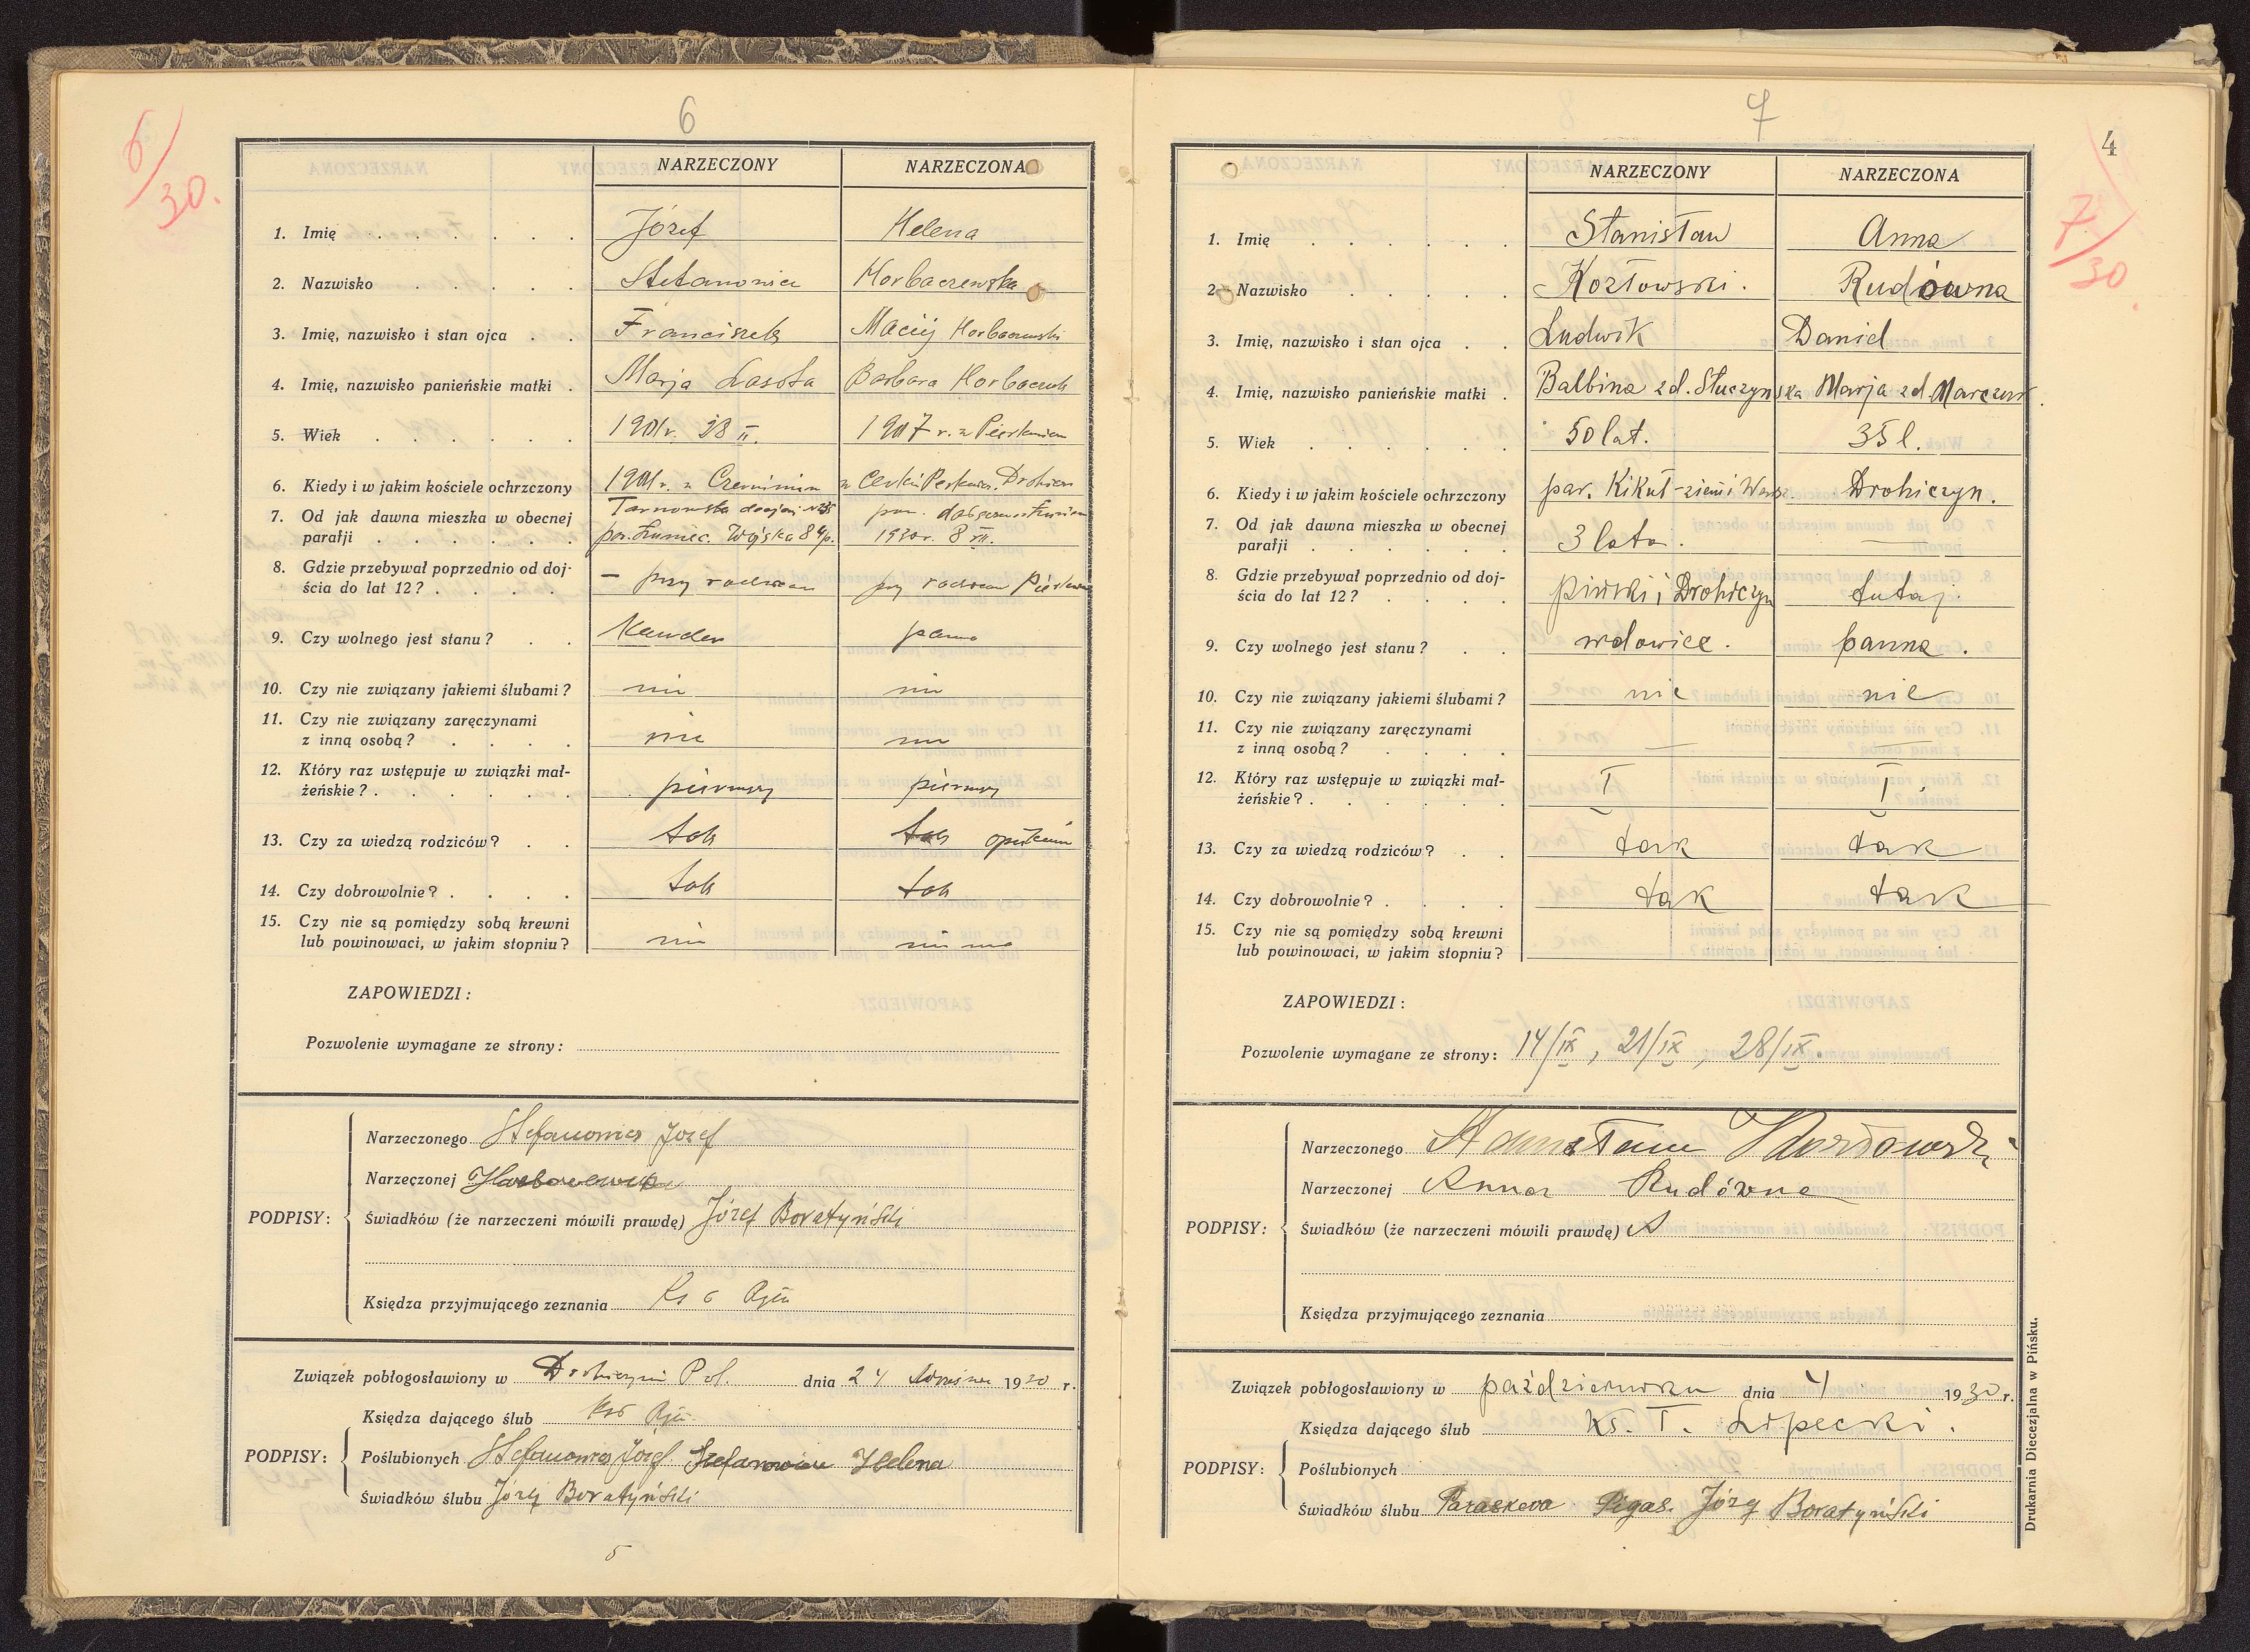 6
6/30.
NARZECZONY NARZECZONA
1. Imię Józef Helena
2. Nazwisko Stefanowicz Horbaczewska
3. Imię, nazwisko i stan ojca Franciszek Maciej Horbaczewski
4. Imię, nazwisko panieńskie matki Marja Lasota Barbara
5. Wiek 1901 r. 28 II. 1907 r. w
6. Kiedy i w jakim kościele ochrzczony 1901 r. w
7. Od jak dawna mieszka w obecnej
parafji par. Łuniec. Wojska 84 p. 1930 r. 8
8. Gdzie przebywał poprzednio od doj-
ścia do lat 12? – przy przy
9. Czy wolnego jest stanu? Kawaler panna
10. Czy nie związany jakiemi ślubami? nie nie
11. Czy nie związany zaręczynami
z inną osobą? nie nie
12. Który raz wstępuje w związki mał-
żeńskie? pierwszy pierwszy
13. Czy za wiedzą rodziców? tak tak
14. Czy dobrowolnie? tak tak
15. Czy nie są pomiędzy sobą krewni
lub powinowaci, w jakim stopniu? nie nie
ZAPOWIEDZI:
Pozwolenie wymagane ze strony:
Narzeczonego Stefanowicz Józef
Narzeczonej
PODPISY: Świadków (że narzeczeni mówili prawdę) Józef Boratyński
Księdza przyjmującego zeznania
Związek pobłogosławiony w Drohiczynie Pol. dnia 24 września 1930 r.
Księdza dającego ślub
PODPISY: Poślubionych Stefanowicz Józef Stefanowicz Helena
Świadków ślubu Józef Boratyński
5
7
4
7/30.
NARZECZONY NARZECZONA
1. Imię Stanisław Anna
2. Nazwisko Kozłowski. Rudówna
3. Imię, nazwisko i stan ojca Ludwik Daniel
4. Imię, nazwisko panieńskie matki Balbina z d. Słuczyńska Marja z d.
5. Wiek 50 lat. 35 l.
6. Kiedy i w jakim kościele ochrzczony par. Kikuł - ziemi Drohiczyn.
7. Od jak dawna mieszka w obecnej
parafji 3 lata. —
8. Gdzie przebywał poprzednio od doj-
ścia do lat 12? piński i Drohiczyn tutaj.
9. Czy wolnego jest stanu? wdowiec. panna.
10. Czy nie związany jakiemi ślubami? nie nie
11. Czy nie związany zaręczynami
z inną osobą? — —
12. Który raz wstępuje w związki mał-
żeńskie? I I.
13. Czy za wiedzą rodziców? tak tak
14. Czy dobrowolnie? tak tak
15. Czy nie są pomiędzy sobą krewni
lub powinowaci, w jakim stopniu?
ZAPOWIEDZI:
Pozwolenie wymagane ze strony: 14/IX, 21/IX, 28/IX.
Narzeczonego Kozłowski
Narzeczonej Anna Rudówna
PODPISY: Świadków (że narzeczeni mówili prawdę)
Księdza przyjmującego zeznania
Związek pobłogosławiony w październiku dnia 4 1930 r.
Księdza dającego ślub Ks. T. Lipecki.
PODPISY: Poślubionych
Świadków ślubu Paraskeva Pigas. Józef Boratyński
Drukarnia Diecezjalna w Pińsku.